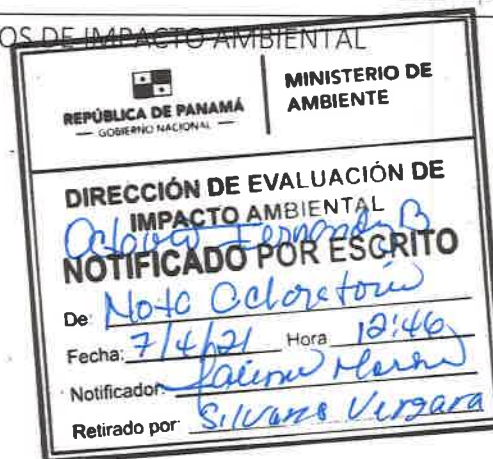 OS DE IMPACTO AMBIENTAL
REPÚBLICA DE PANAMÁ
— GOBIERNO NACIONAL —
MINISTERIO DE
AMBIENTE
DIRECCIÓN DE EVALUACIÓN DE
IMPACTO AMBIENTAL
NOTIFICADO POR ESCRITO
De:
Fecha: 7/4/21 Hora 12:46
Notificador:
Retirado por: Silvana Vergara